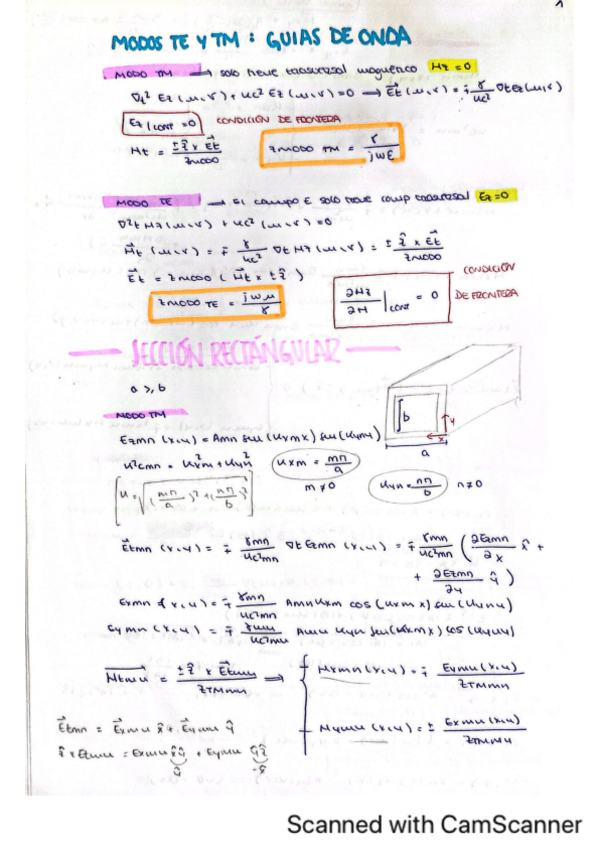 1
MODOS TE Y TM : GUIAS DE ONDA
MODO TM → solo tiene trasversal magnetico Hz = 0
∇t² Ez (u,v) + Kc² Ez (u,v) = 0 → E⃗t (u,v) = ∓ γ/Kc² ∇t Ez (u,v)
Ez|cont = 0 CONDICIÓN DE FRONTERA
Ht = ± ẑ x E⃗t / Zmodo
Zmodo TM = γ / jωε
MODO TE → El campo E solo tiene comp trasversal Ez = 0
∇²t Hz (u,v) + Kc² (u,v) = 0
H⃗t (u,v) = ∓ γ/Kc² ∇t Hz (u,v) = ± ẑ x E⃗t / Zmodo
E⃗t = Zmodo (H⃗t x ± ẑ)
CONDICIÓN DE FRONTERA
Zmodo TE = jωμ / γ
∂Hz/∂H |cont = 0
SECCIÓN RECTÁNGULAR
a >, b
b
y
x
a
MODO TM
Ezmn (x,y) = Amn sen (Kxm x) sen (Kyn y)
K²cmn = K²xm + K²yn
Kxm = mπ/a
m ≠ 0
Kyn = nπ/b n ≠ 0
[K = √((mπ/a)² + (nπ/b)²)]
E⃗tmn (x,y) = ∓ γmn/Kc²mn ∇t Ezmn (x,y) = ∓ γmn/Kc²mn (∂Ezmn/∂x x̂ +
+ ∂Ezmn/∂y ŷ)
Exmn (x,y) = ∓ γmn/Kc²mn Amn Kxm cos (Kxm x) sen (Kyn y)
Eymn (x,y) = ∓ γmn/Kc²mn Amn Kyn sen (Kxm x) cos (Kyn y)
H⃗tmn = ± ẑ x E⃗tmn / ZTMmn ⟹
Hxmn (x,y) = ∓ Eymn (x,y) / ZTMmn
Hymn (x,y) = ± Exmn (x,y) / ZTMmn
E⃗tmn = E⃗xmn x̂ + E⃗ymn ŷ
ẑ x Etmn = Exmn x̂ŷ + Eymn ŷẑ
ŷ -x̂
Scanned with CamScanner